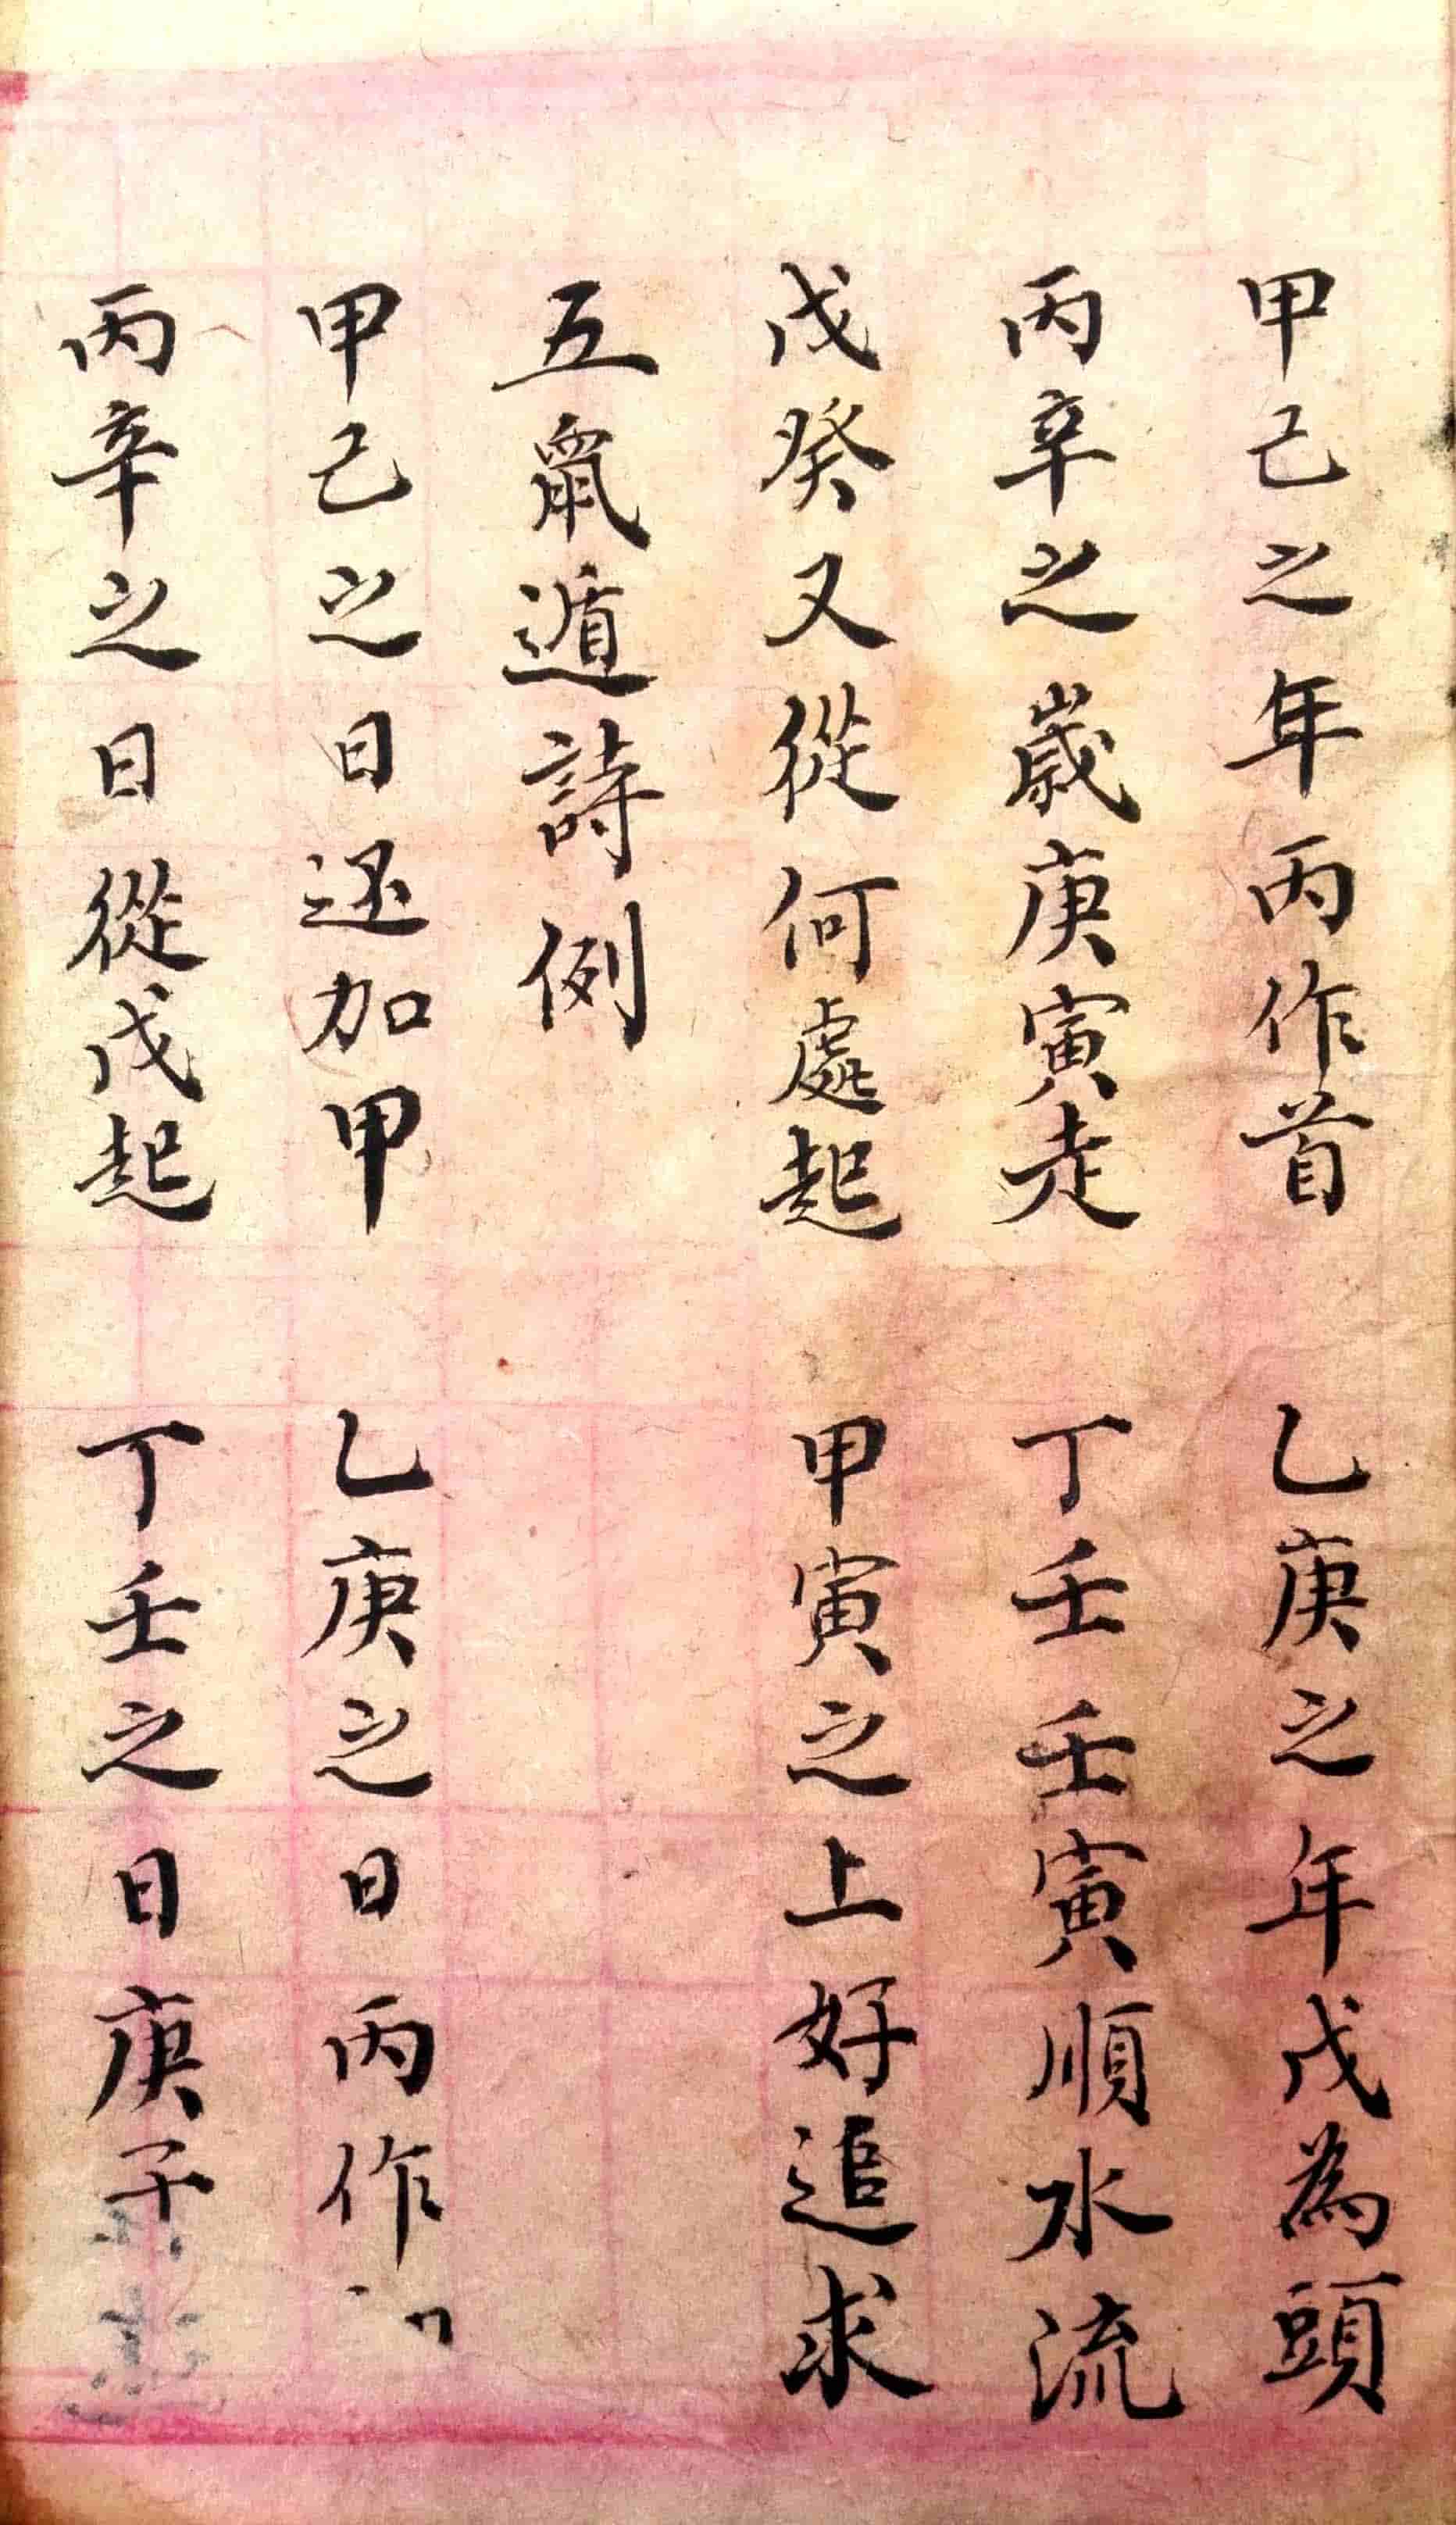 甲己之年丙作首 乙庚之年戊為頭
丙辛之歲庚寅走 丁壬壬寅順水流
戊癸又從何處起 甲寅之上好追求
五鼠遁詩例
甲己之日还加甲 乙庚之日丙作
丙辛之日從戊起 丁壬之日庚子